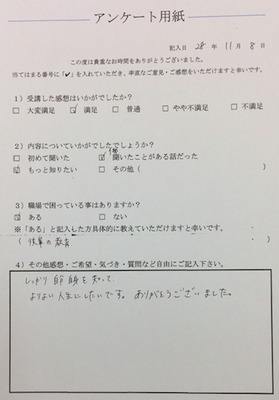 アンケート用紙
記入日 28 年 11 月 8 日
この度は貴重なお時間をありがとうございました。
当てはまる番号に「✓」を入れていただき、率直なご意見・ご感想をいただけますと幸いです。
1）受講した感想はいかがでしたか？
□ 大変満足 ☑ 満足 □ 普通 □ やや不満足 □ 不満足
2）内容についていかがでしたでしょうか？
□ 初めて聞いた ☑ 聞いたことがある話だった
☑ もっと知りたい □ その他（ ）
3）職場で困っている事はありますか？
☑ ある □ ない
※「ある」と記入した方具体的に教えていただけますと幸いです。
（ 後輩の教育 ）
4）その他感想・ご希望・気づき・質問など自由にご記入下さい。
しっかり 節 顔を知って
よりよい人生にしたいです。ありがとうございました。